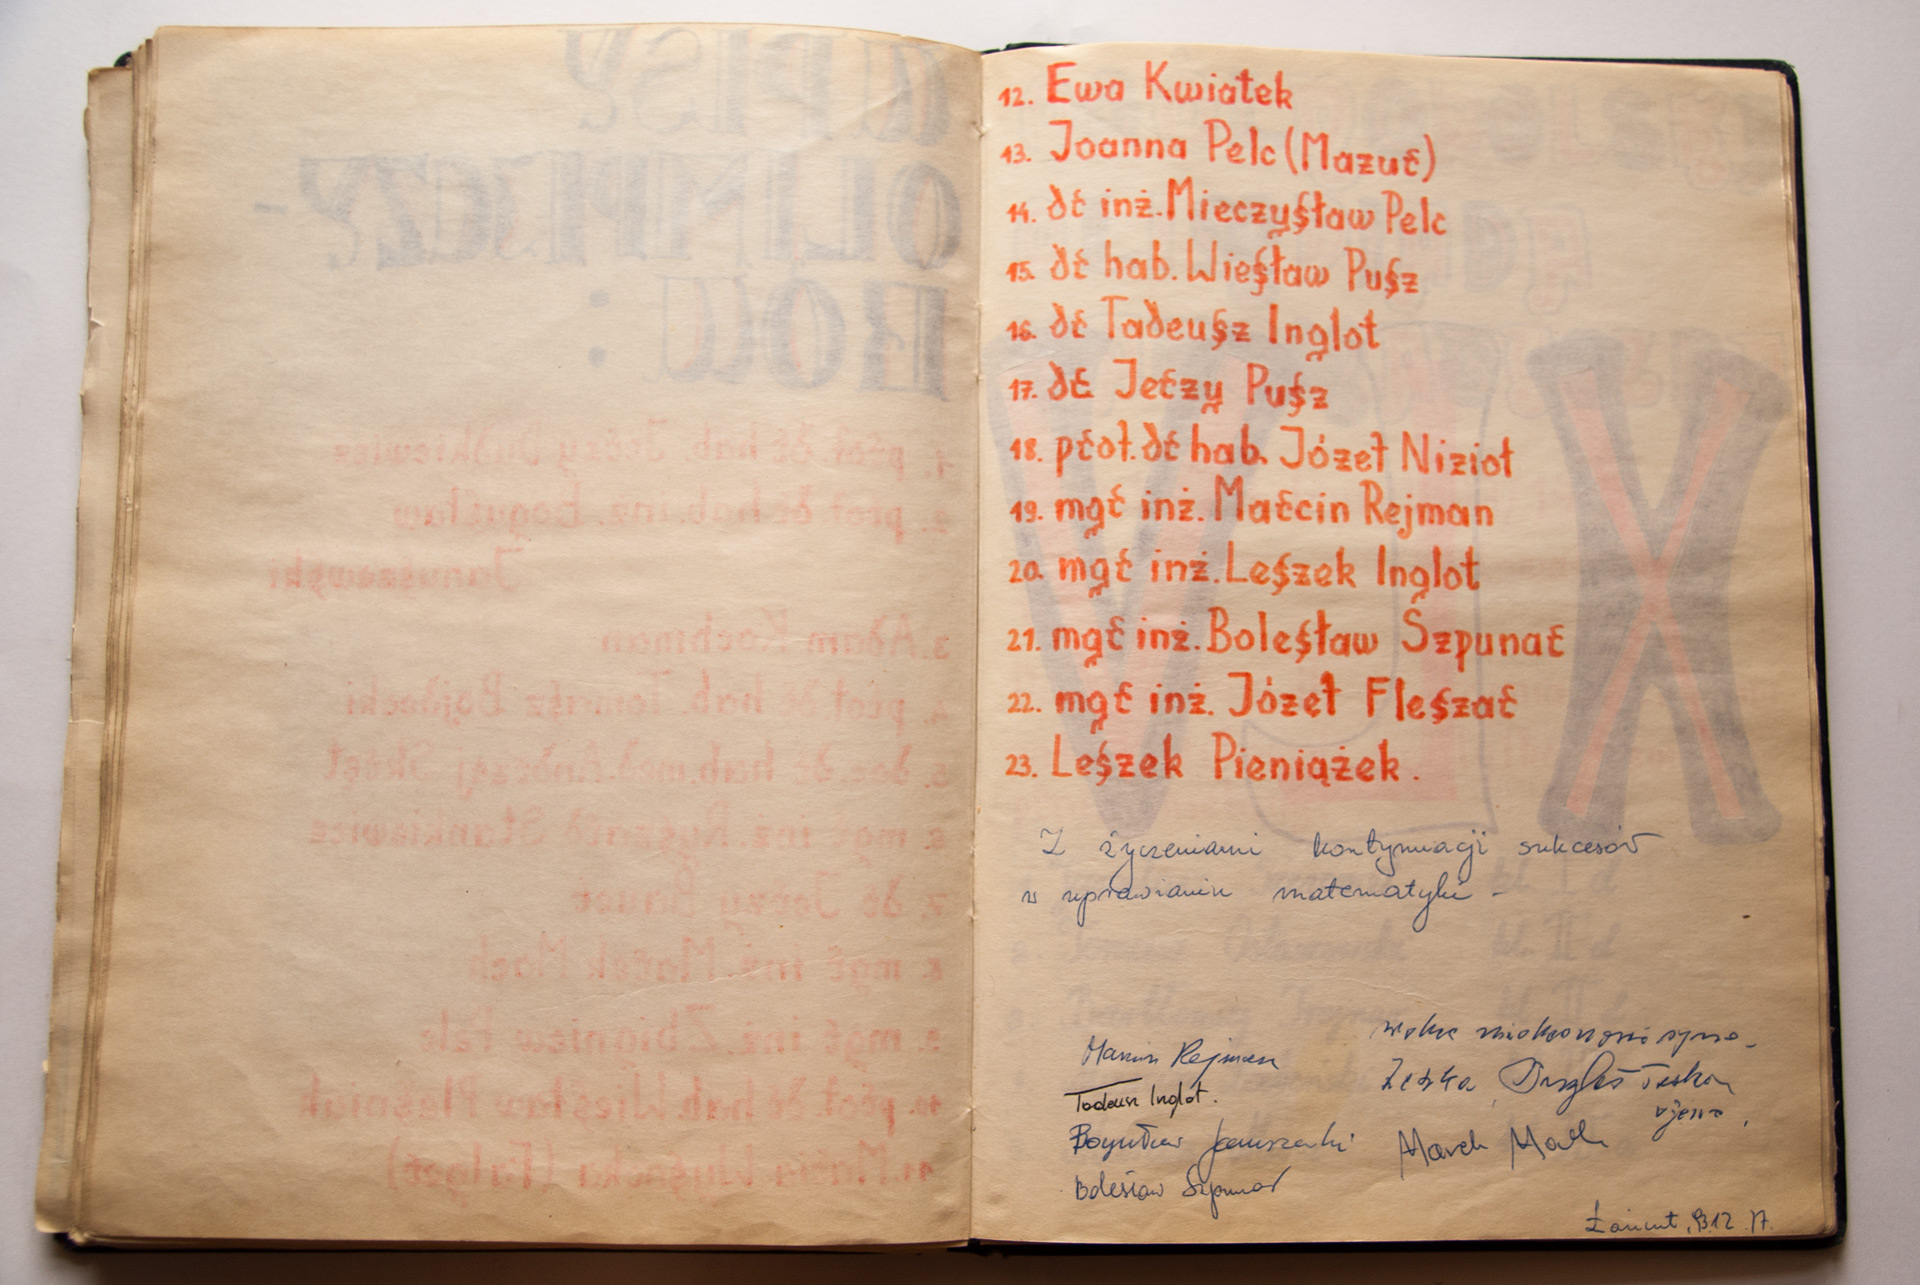 12. Ewa Kwiatek
13. Joanna Pelc (Mazur)
14. dr inż. Mieczysław Pelc
15. dr hab. Wiesław Pusz
16. dr Tadeusz Inglot
17. dr Jerzy Pusz
18. prof. dr hab. Józef Nizioł
19. mgr inż. Marcin Rejman
20. mgr inż. Leszek Inglot
21. mgr inż. Bolesław Szpunar
22. mgr inż. Józef Fleszar
23. Leszek Pieniążek.
Z życzeniami kontynuacji sukcesów
w uprawianiu matematyki -
Marcin Rejman
Tadeusz Inglot.
Bogusław Januszewski
Bolesław Szpunar
Marek Mach
Łańcut,